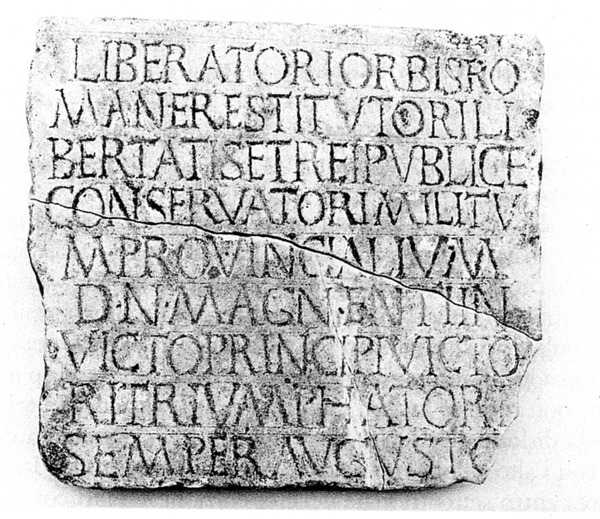 LIBERATORIORBISRO
MANERESTITVTORILI
BERTATISETREIPVBLICE
CONSERVATORIMILITV
MPROVINCIALIVM
D·N·MAGNENTIIN
VICTOPRINCIPIVICTO
RITRIVMPHATORI
SEMPER AVGVSTO